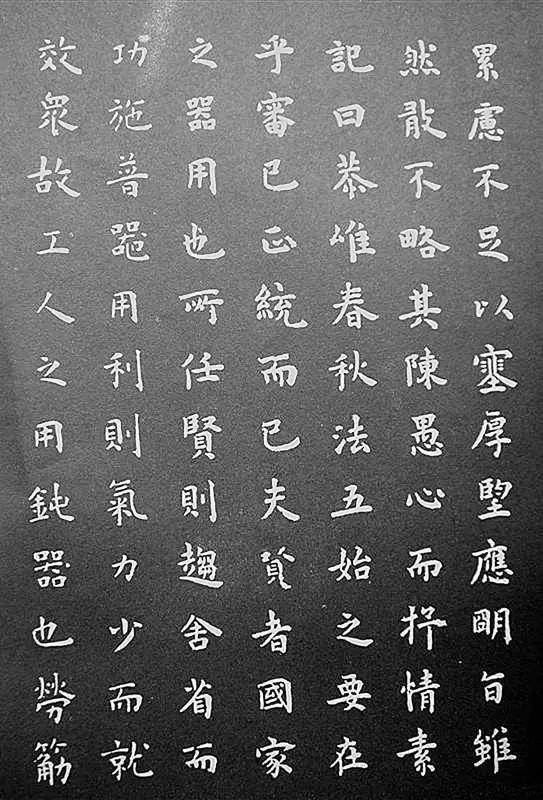 累慮不足以塞厚望應明旨雖
然敢不略其陳愚心而抒情素
記曰恭惟春秋法五始之要在
乎審已正統而已夫賢者國家
之器用也所任賢則趨舍省而
功施普器用利則氣力少而就
效眾故工人之用鈍器也勞筋